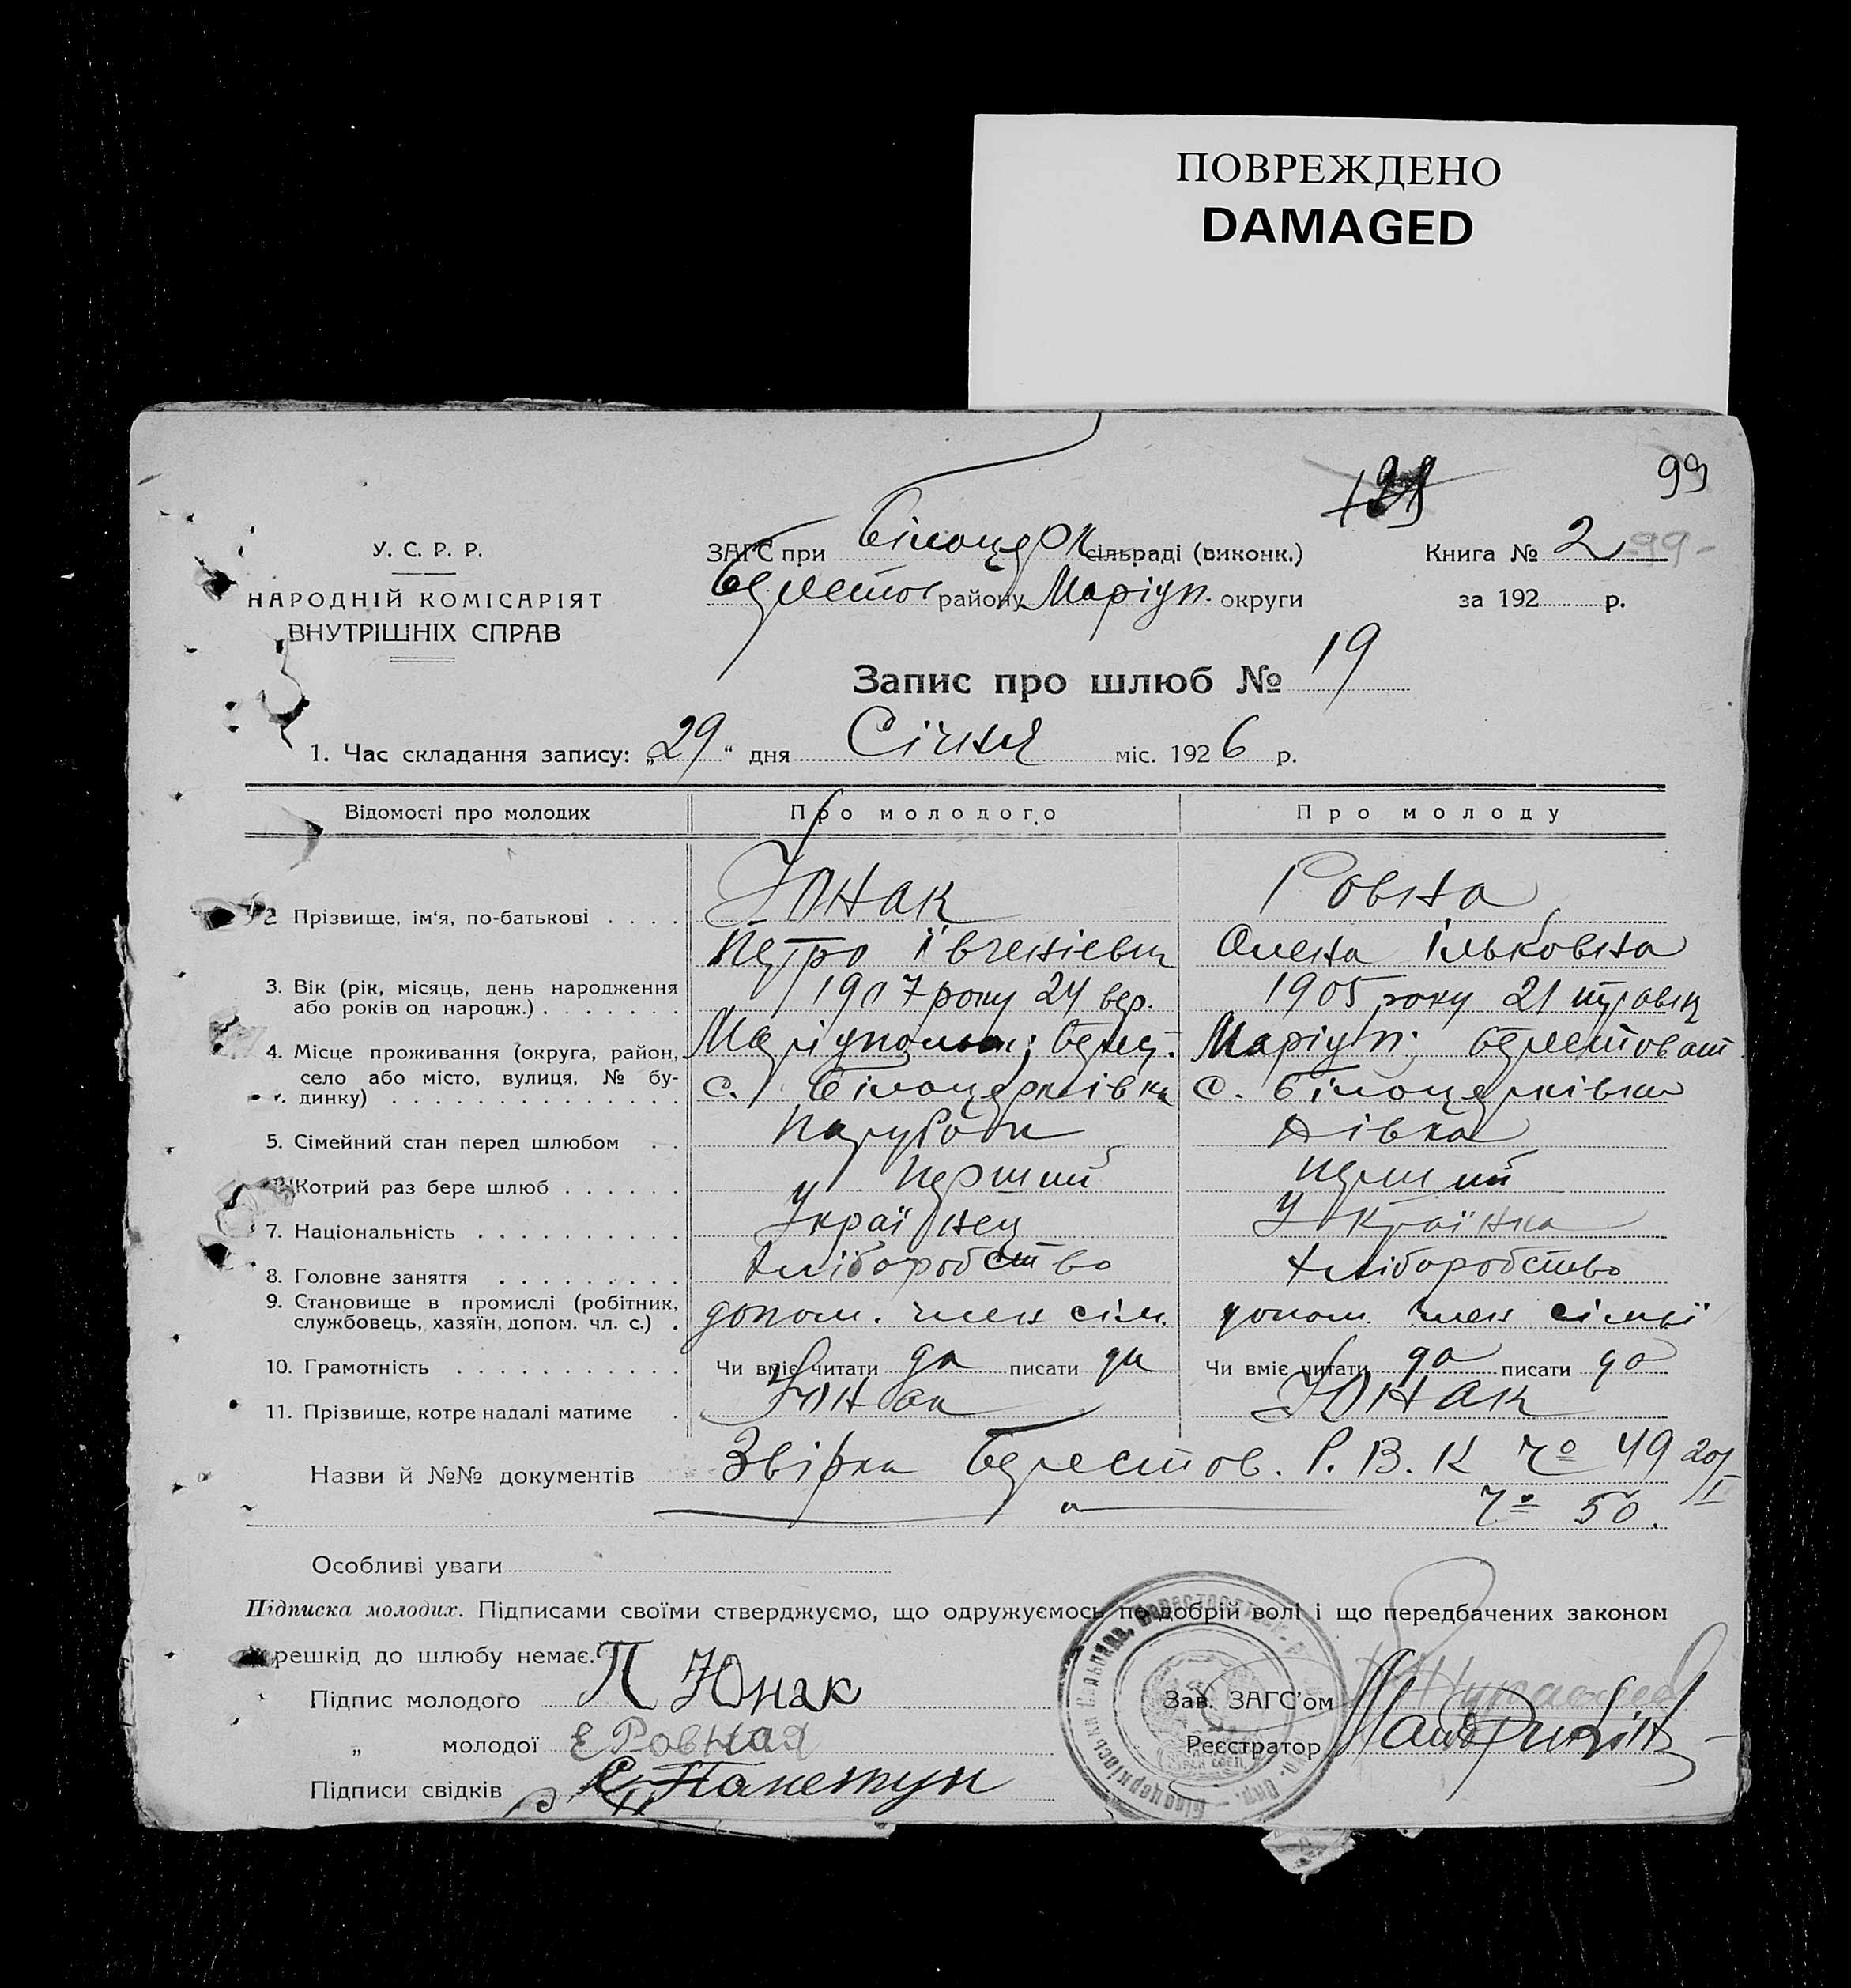 ПОВРЕЖДЕНО
DAMAGED
99
У. С. Р. Р.
НАРОДНІЙ КОМІСАРІЯТ
ВНУТРІШНІХ СПРАВ
ЗАГС при Білоцерк сільраді (виконк.)
Берестов району Маріуп. округи
Книга № 2 99-
за 192 р.
Запис про шлюб № 19
1. Час складання запису: „29“ дня Січня міс. 1926 р.
Відомості про молодих Про молодого Про молоду
2. Прізвище, ім'я, по-батькові . . . . Юнак Ровна
Петро Івгенієвич Олена Ільковна
3. Вік (рік, місяць, день народження
або років од народж.) . . . . . . . 1907 року 24 вер. 1905 року 21 травня
4. Місце проживання (округа, район,
село або місто, вулиця, № бу-
динку) . . . . . . . . . . . . . .
Маріупольск; Берес. Маріуп; Берестоват
с. Білоцерківка с. Білоцерківка
5. Сімейний стан перед шлюбом . . Парубок Дівка
Котрий раз бере шлюб . . . . . . Перший перший
7. Національність . . . . . . . . . . Українец Українка
8. Головне заняття . . . . . . . . . Хліборобство Хліборобство
9. Становище в промислі (робітник,
службовець, хазяїн, допом. чл. с.) . допом. член сім. допом. член сімьї
10. Грамотність . . . . . . . . . . . Чи вміє читати да писати да Чи вміє читати да писати да
11. Прізвище, котре надалі матиме . Юнак Юнак
Назви й №№ документів Звірка Берестов. Р. В. К Чо 49 20/I
" Чо 50.
Особливі уваги
Підписка молодих. Підписами своїми стверджуємо, що одружуємось по добрій волі і що передбачених законом
решкід до шлюбу немає.
Підпис молодого П Юнак
„ молодої Е Ровная
Підписи свідків
Зав. ЗАГС'ом
Реєстратор